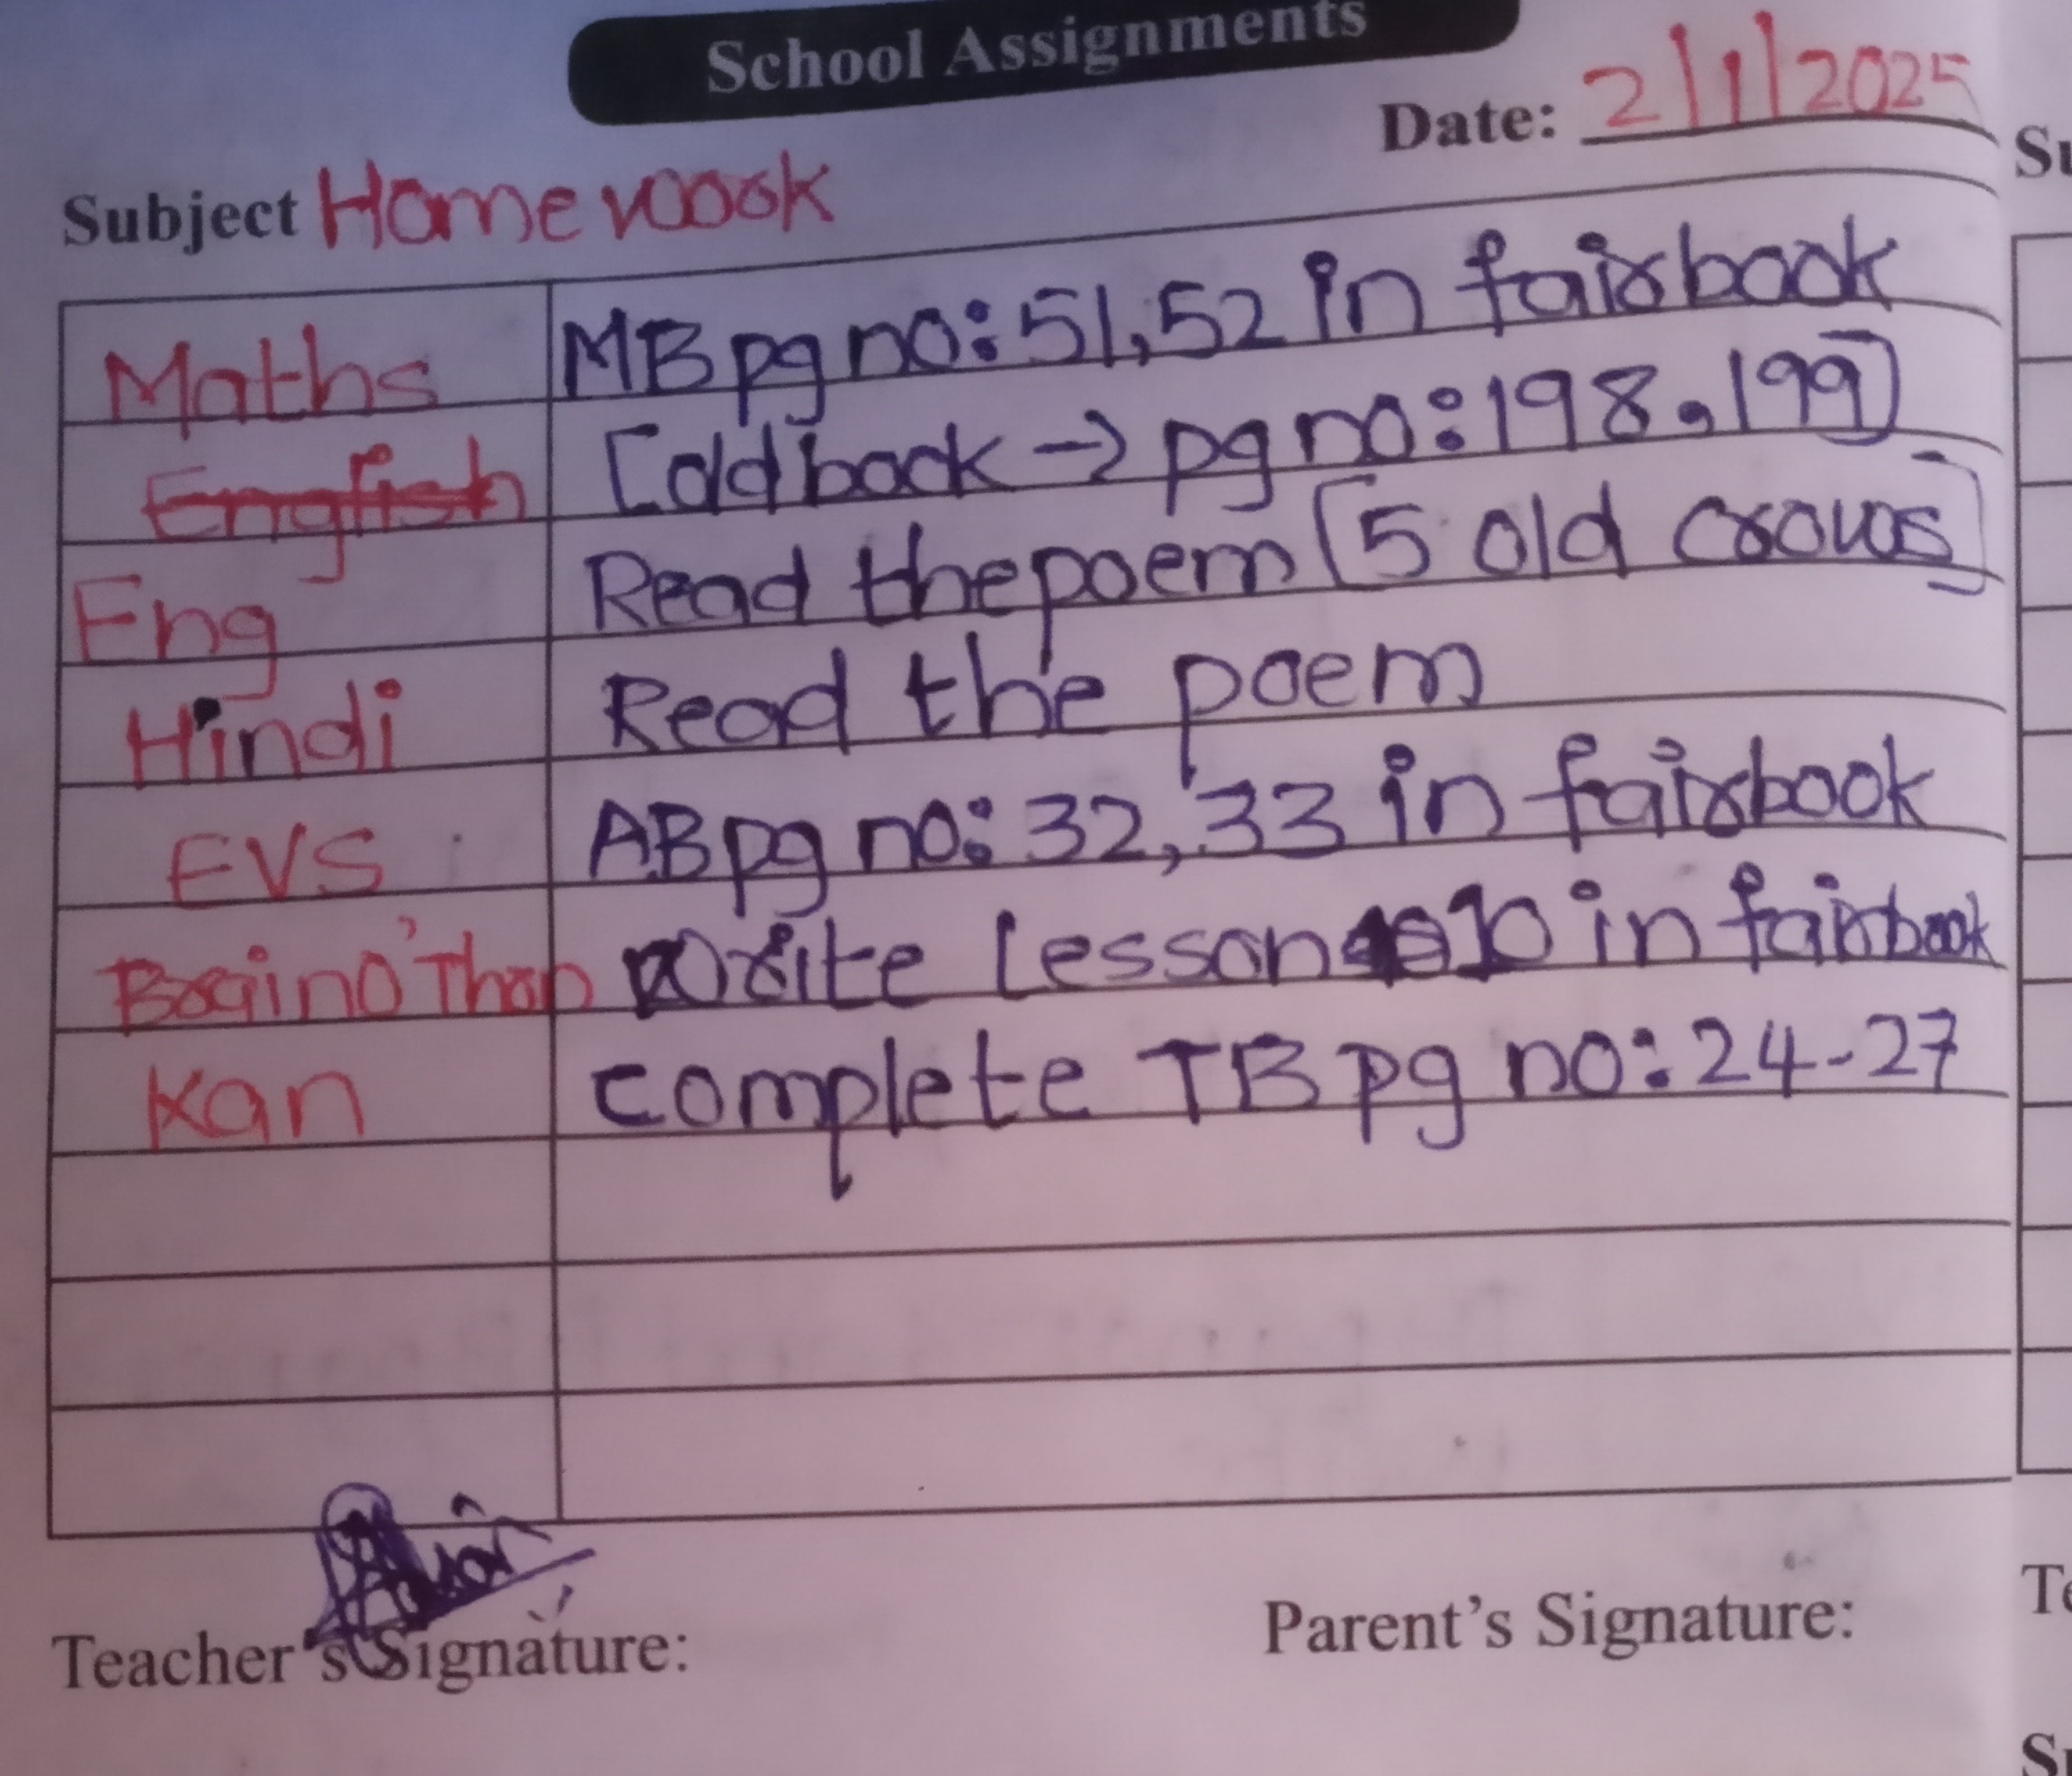 School Assignments
Date: 2/1/2025
Subject Homework
Maths MB pg no: 51, 52 in fairbook
English [old book → pg no: 198, 199]
Eng Read the poem [5 old crows]
Hindi Read the poem
EVS AB pg no: 32, 33 in fairbook
Brain O'Than Write lesson 10 in fairbook
Kan complete TB pg no: 24-27
Teacher's Signature:
Parent's Signature: